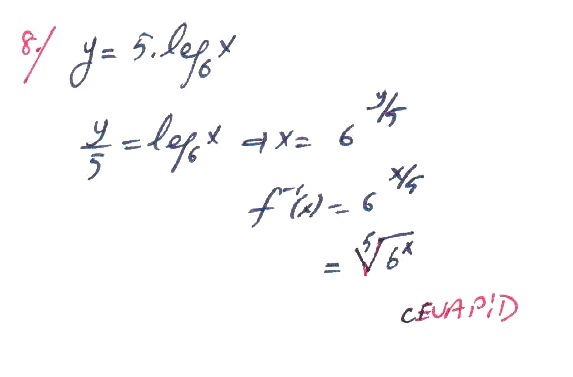 8-/ y = 5.log₆x
y/5 = log₆x ⇒ x = 6^(y/5)
f⁻¹(x) = 6^(x/5)
= ⁵√6ˣ
CEVAP:D